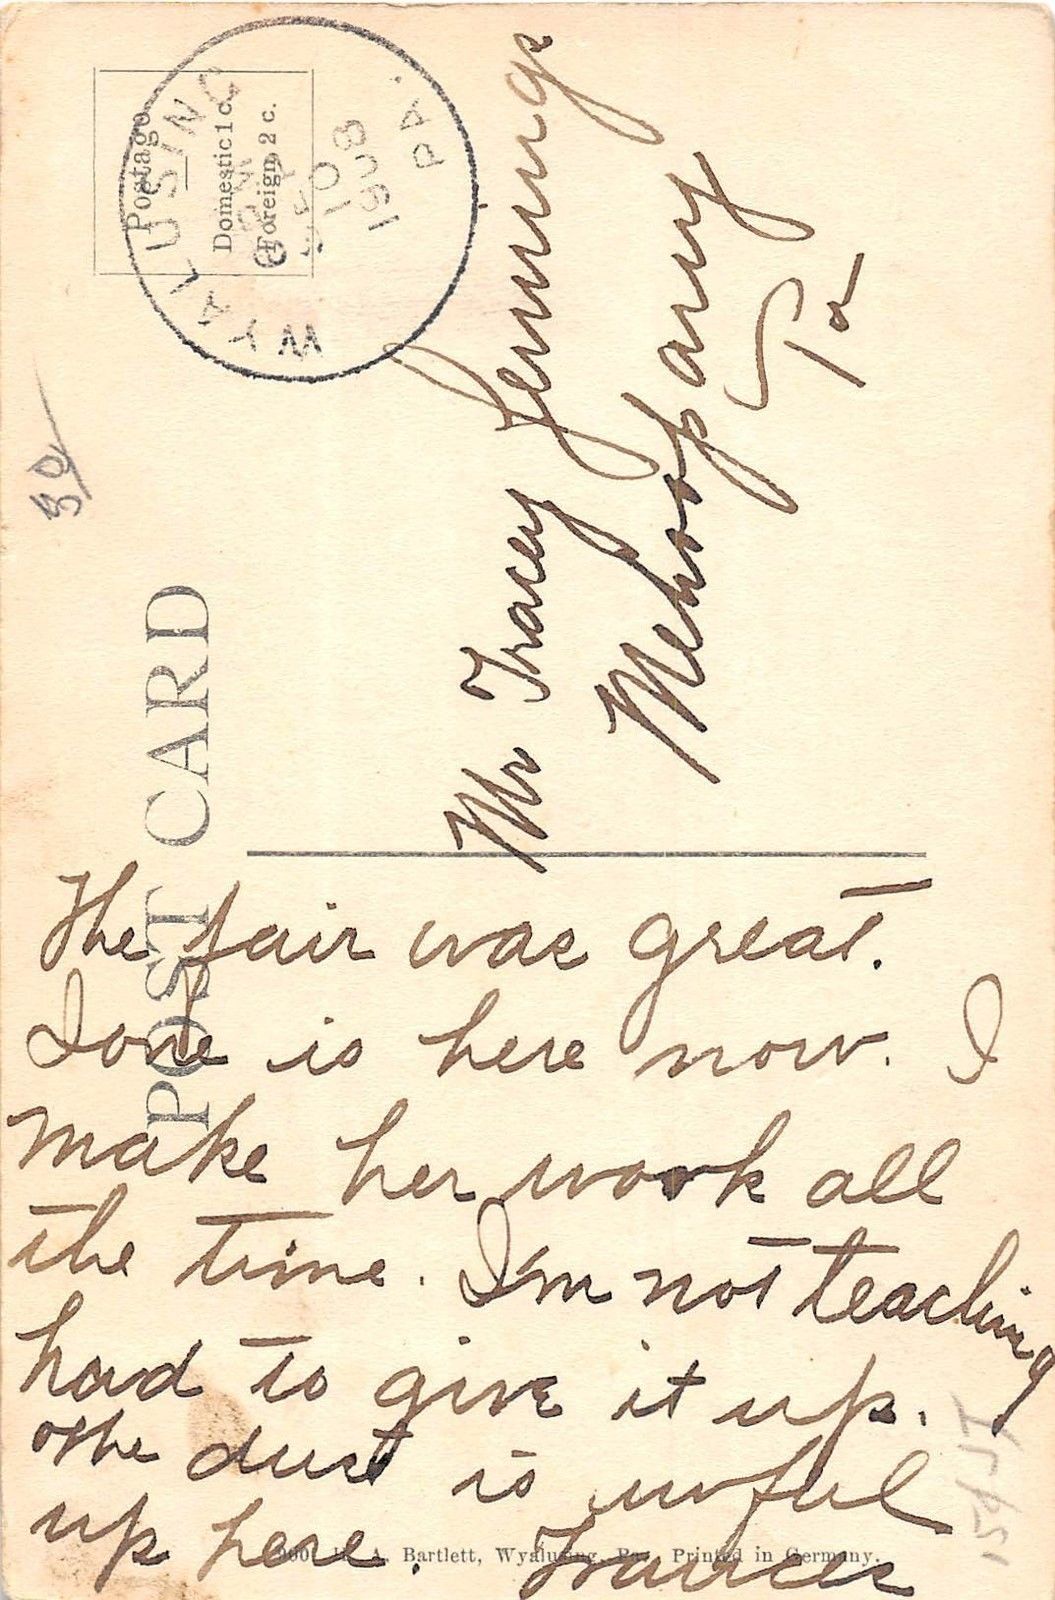 POST CARD
Postage
Domestic 1 c.
Foreign, 2 c.
WYALUSING
PA.
10
1908
Mr Tracey Jennings
Mehoopany
Pa
The fair was great.
Ione is here now. I
make her work all
the time. I'm not teaching
had to give it up.
The dust is awful
up here. Frances
A. Bartlett, Wyalusing, Pa. Printed in Germany.